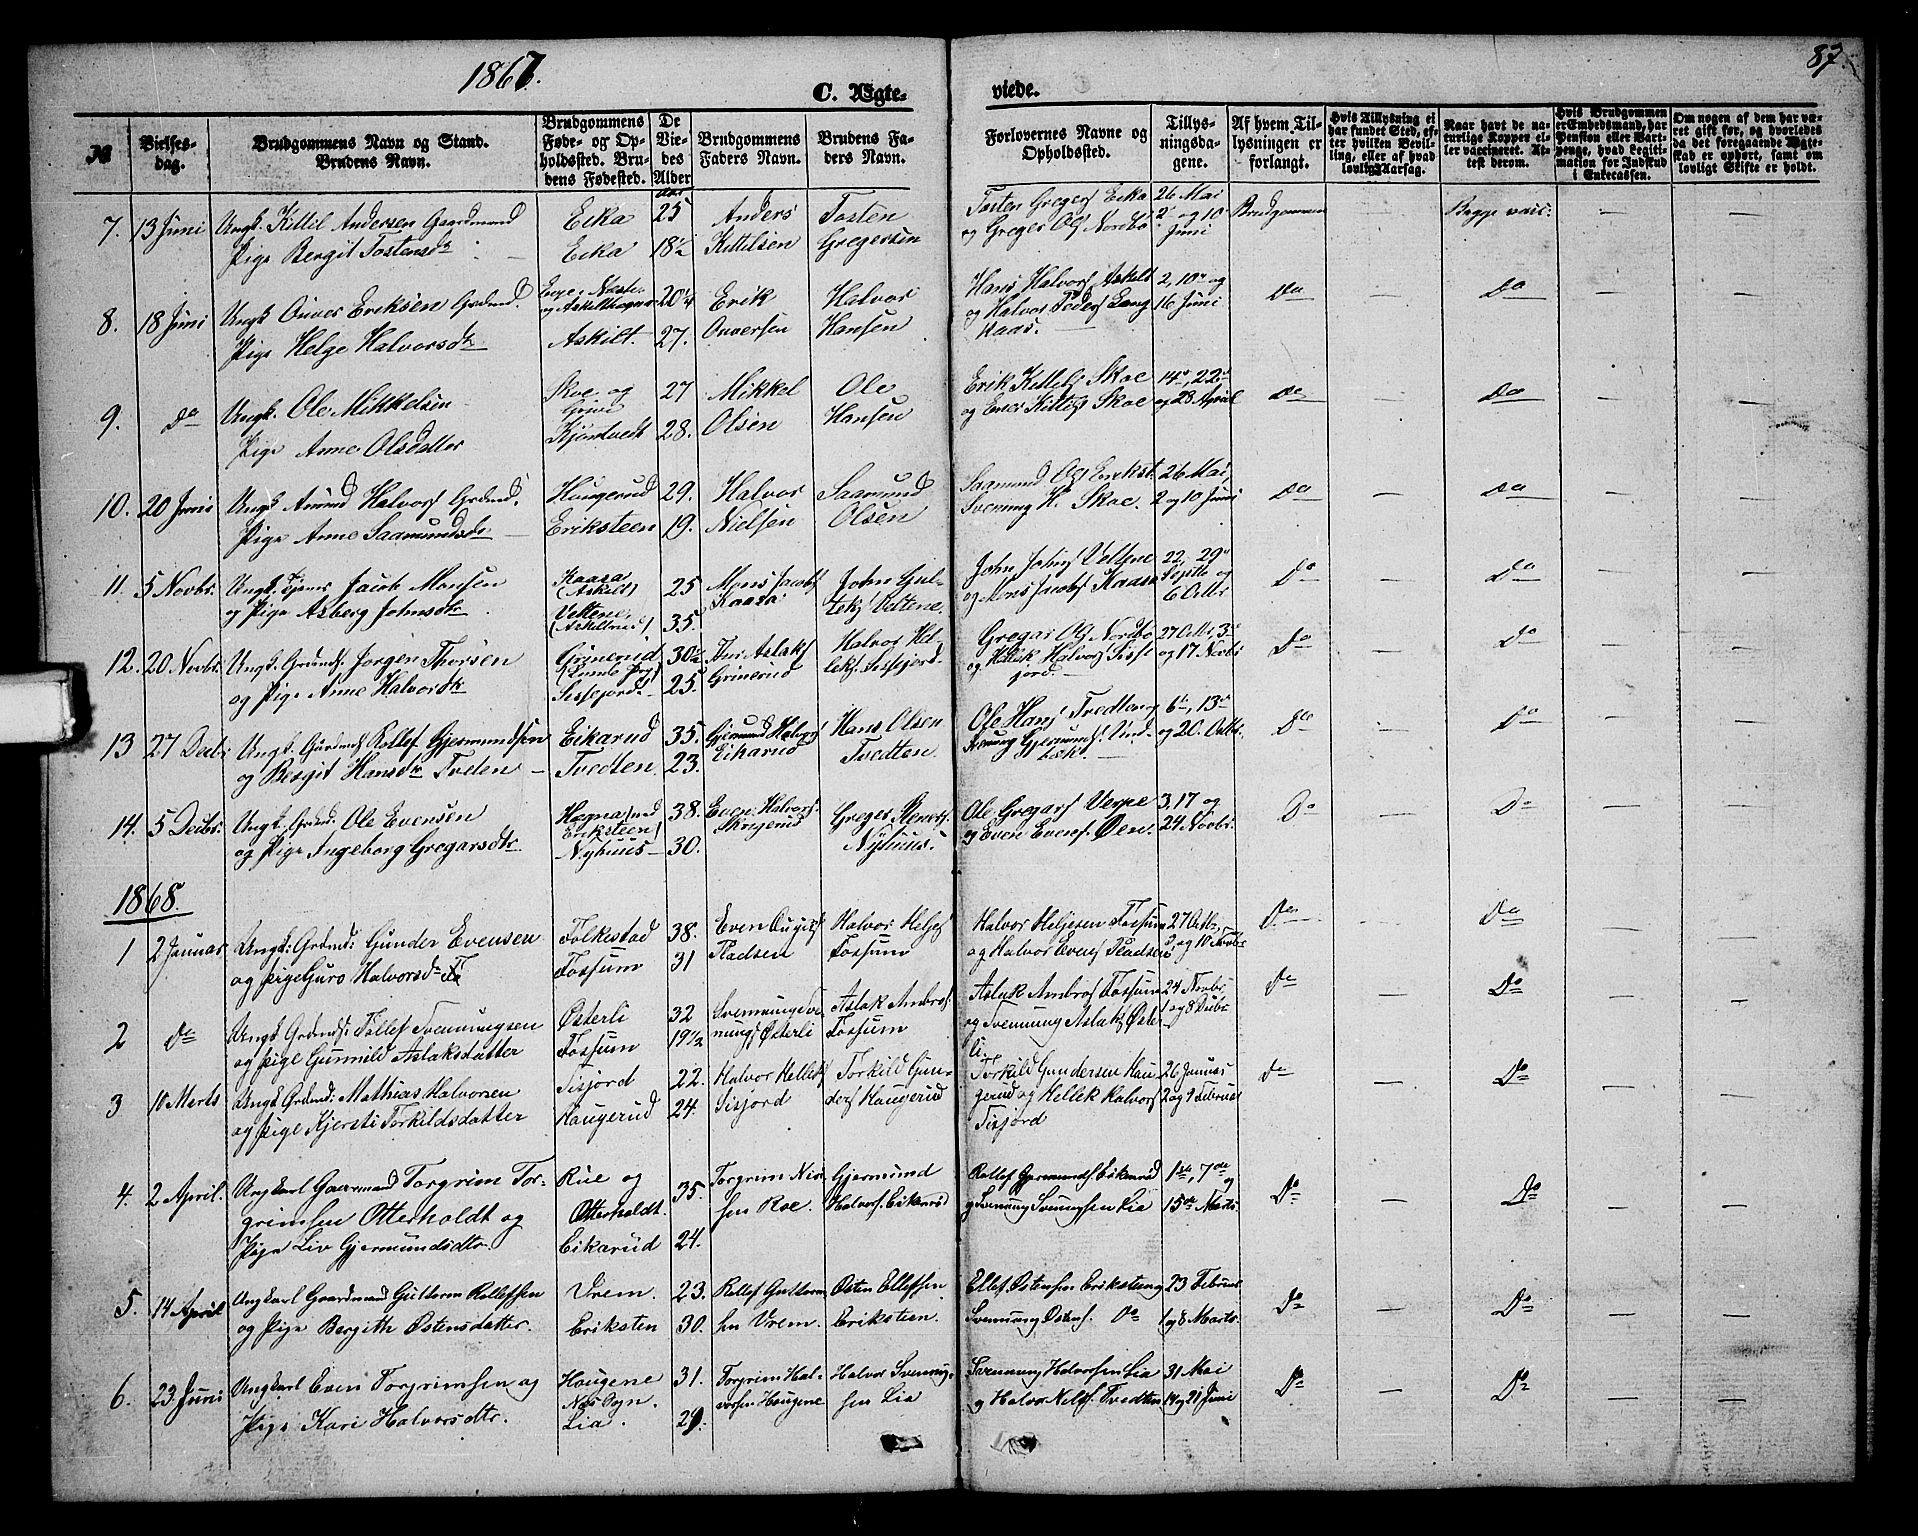 1867.
87.
C. Ægteviede.
No
Vielsesdag.
Brudgommens Navn og Stand. Brudens Navn.
Brudgommens Føde- og Opholdssted. Brudens Fødested.
De Viedes Alder
Brudgommens Faders Navn.
Brudens Faders Navn.
Forlovernes Navne og Opholdssted.
Tillysningsdagene.
Af hvem Tillysningen er forlangt.
Hvis Tillysning ei har fundet Sted, efter hvilken Bevilling, eller af hvad lovlig Aarsag.
Naar havt de naturlige Kopper eller vaccineret. Attest derom.
Hvis Brudgommen er Embedsmand, har Pension eller Vartpenge, hvad Legitimation for Indskud i Enkecassen.
Om nogen af dem har været gift før, og hvorledes da det foregaaende Ægteskab er ophørt, samt om lovligt Skifte er holdt.
7. 13 Juni Ungk. Kittil Andersen Gaardmand Eika 25 Anders Tosten Tosten Gregers Eika 26 Mai Brudgommen Begge vacc:
Pige Bergit Tostensdr Eika 18½ Kittilsen Gregersen og Greger Ols Nordbø 2 og 10 Juni
8. 18 Juni Ungk Onver Eriksen Grdmd. 20¼ Erik Halvor Hans Halvors Askilt 2, 10 og Do Do
Pige Helge Halvorsdtr Askilt. 27. Onversen Hansen og Halvor Peders Langkaas. 16 Juni
9. Do Ungk. Ole Mikkelsen Skoe og 27 Mikkel Ole Erik Kittils Skoe 14, 22 Do Do
Pige Anne Olsdatter 28. Olsen Hansen og Skoe og 28 April
10. 20 Juni Ungk Amund Halvors Grdmd. Haugerud 29. Halvor Saamund Saamund Ols Erikst. 26 Mai, Do Do
Pige Anne Saamundsdr Eriksteen 19. Nielsen Olsen Svenung H. Skoe. 2 og 10 Juni
11. 5 Novbr. Ungk. Tjener Jacob Monsen Kaasa (Askilt) 25 Mons Jacobs Kaasa John Veltene 22, 29 Septb og 6 Octbr Do Do
og Pige Asberg Johnsdtr Veltene (Askiltrud) 35. og Mons Jacobs Kaasa
12. 20 Novbr. Ungk. Grdmds. Jorgen Thorsen Grinerud 30½ Aslaks Grinerud Halvor Helleks Sissejord. Gregar Ols Nordbø 27 Octbr, 3 og 17 Novbr Do Do
og Pige Anne Halvorsdtr Sissejord. 25. og Hellik Halvors Sissejord.
13 27 Decbr Ungk. Gardmds Rollef Gjermundsen Eikarud 35. Gjermund Halvors Eikarud Hans Olsen Tvedten Ole Hans Tvedten og 6, 13 Do Do
og Bergit Hansdtr Tveten Tvedten. 23. Svenung Gjermunds Lindbæk. og 20. Octbr.
14. 5 Decbr. Ungk. Grdmd. Ole Evensen Hagna (ved Eriksteen) 38. Even Halvors. Skrigerud Greger Steners. Nyhuus. Ole Gregars Verpe 3, 17 og Do Do
og Pige Ingeborg Gregarsdtr Nyhuus 30. og Even Evens. Øen. 24 Novbr.
1868.
1 2 Januar Ungk: Grdmd: Gunder Evensen Folkestad 38. Even Halvor Heljes Halvor Heljesen Fossum 27 Octbr, Do Do
og Pige Guro Halvorsd Fossum 31 Pladsen Fossum og Halvor Evens Pladsen 3 og 10 Novbr
2 Do Ungk Grdmds: Tollef Svenungsen Østerli 32 Svenung Svenungs Østerli Aslak Ambros Fossum Aslak Ambros Fossum 24 Novbr Do Do
og Pige Gunnild Aslaksdatter Fossum 19½ og Svenung Aslaks Østerli 1 og 8 Decbr
3 10 Marts Ungk Grdmd: Mathias Halvorsen Sisjord 22. Halvor Helleks Sisjord Torkild Gunders Haugerud Torkild Gundersen Haugerud og Hellek Halvors Sisjord 26 Januar 2 og 9 Februar Do Do
og Pige Kjersti Torkildsdatter Haugerud 24.
4. 2 April. Ungkarl Gaardmand Torgrim Torgrimsen Otterholdt og Rue og Otterholdt. 35. Torgrim Roe. Gjermund Halvors. Eikerud Rollef Gjermunds. Eikerud 1ste, 7de og Do Do
Pige Liv Gjermundsdtr. Eikarud 24. og Svenung Svenungsen Lia 15de Marts
5. 14 April Ungkarl Gaardmand Guttorm Rollefsen Vrem. 23. Rollef Guttormsen Vrem. Østen Ellefsen Eriksteen. Ellef Østensen Eriksten og 23 Februar Do Do
og Pige Bergith Østensdatter. Eriksten 30. Svenung Østens. Do 1 og 8 Marts.
6. 23 Juni Ungkarl Even Torgrimsen og Haugene Næs Sogn. 31. Torgrim Halvorsen Haugene Halvor Svenungsen Lia Svenung Halvorsen Lia 31 Mai Do Do
Pige Kari Halvorsdtr. Lia. 29. og Halvor Niels. Tvedten 14 og 21 Juni